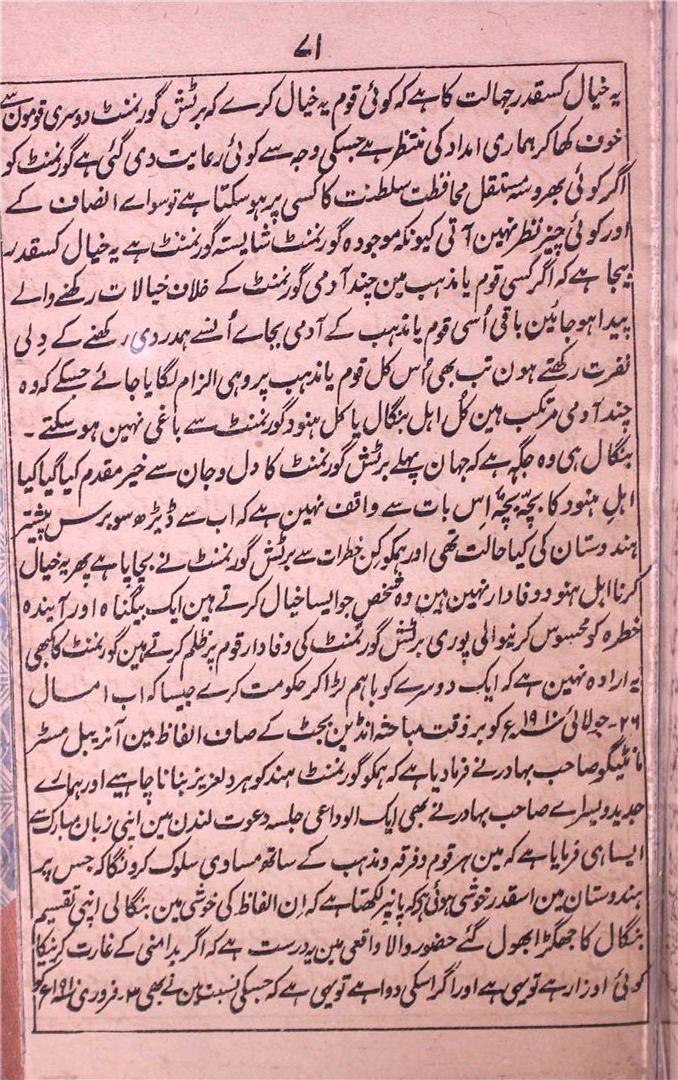 ۷۱
یہ خیال کسقدر جہالت کا ہے کہ کوئی قوم یہ خیال کرے کہ برٹش گورنمنٹ دوسری قومون سے
خوف کھاکر ہماری امداد کی منتظر ہے جسکی وجہ سے کوئی رعایت دی گئی ہے گورنمنٹ کو
اگر کوئی بھروسہ مستقل محافظت سلطنت کا کسی پر ہوسکتا ہے تو سواے انصاف کے
اور کوئی چیز نظر نہین آتی کیونکہ موجودہ گورنمنٹ شایستہ گورنمنٹ ہے یہ خیال کسقدر
بیجا ہے کہ اگر کسی قوم یا مذہب مین چند آدمی گورنمنٹ کے خلاف خیالات رکھنے والے
پیدا ہو جائین باقی اُسی قوم یا مذہب کے آدمی بجاے اُنسے ہمدردی رکھنے کے دلی
نفرت رکھتے ہون تب بھی اُس کل قوم یا مذہب پر وہی الزام لگایا جائے جسکے کہ وہ
چند آدمی مرتکب ہین کُل اہل بنگال یا کل ہنود گورنمنٹ سے باغی نہین ہوسکتے ۔
بنگال ہی وہ جگہ ہے کہ جہان پہلے برٹش گورنمنٹ کا دل و جان سے خیر مقدم کیا گیا کیا
اہل ہنود کا بچہ بچہ اِس بات سے واقف نہین ہے کہ اب سے ڈیڑھ سو برس پیشتر
ہندوستان کی کیا حالت تھی اور ہمکو کن خطرات سے برٹش گورنمنٹ نے بچایا ہے پھر یہ خیال
کرنا اہل ہنود وفادار نہین ہین وہ شخص جو ایسا خیال کرتے ہین ایک بیگناہ اور آیندہ
خطرہ کو محسوس کرنیوالی پوری برٹش گورنمنٹ کی وفادار قوم پر ظلم کرتے ہین گورنمنٹ کا کبھی
یہ ارادہ نہین ہے کہ ایک دوسرے کو باہم لڑا کر حکومت کرے جیسا کہ اب امسال
۲۶۔ جولائی سنہ ۱۹۱۰ء کو بروقت مباحثہ انڈین بجٹ کے صاف الفاظ مین آنریبل مسٹر
مانٹیگو صاحب بہادر نے فرمادیا ہے کہ ہمکو گورنمنٹ ہند کو ہردلعزیز بنانا چاہیے اور ہمارے
جدید ویسراے صاحب بہادر نے بھی ایک الوداعی جلسہ دعوت لندن مین اپنی زبان مبارک سے
ایسا ہی فرمایا ہے کہ مین ہر قوم و فرقہ و مذہب کے ساتھ مساوی سلوک کرونگا کہ جس پر
ہندوستان مین اسقدر خوشی ہوئی کہ پانیر لکھتا ہے کہ اِن الفاظ کی خوشی مین بنگالی اپنی تقسیم
بنگال کا جھگڑا بھول گئے حضور والا واقعی مین یہ درست ہے کہ اگر بدامنی کے غارت کرنیکا
کوئی اوزار ہے تو یہی ہے اور اگر اسکی دوا ہے تو یہی ہے کہ جسکی نسبت مین نے بھی ۳۔ فروری سنہ ۱۹۱۰ء کو